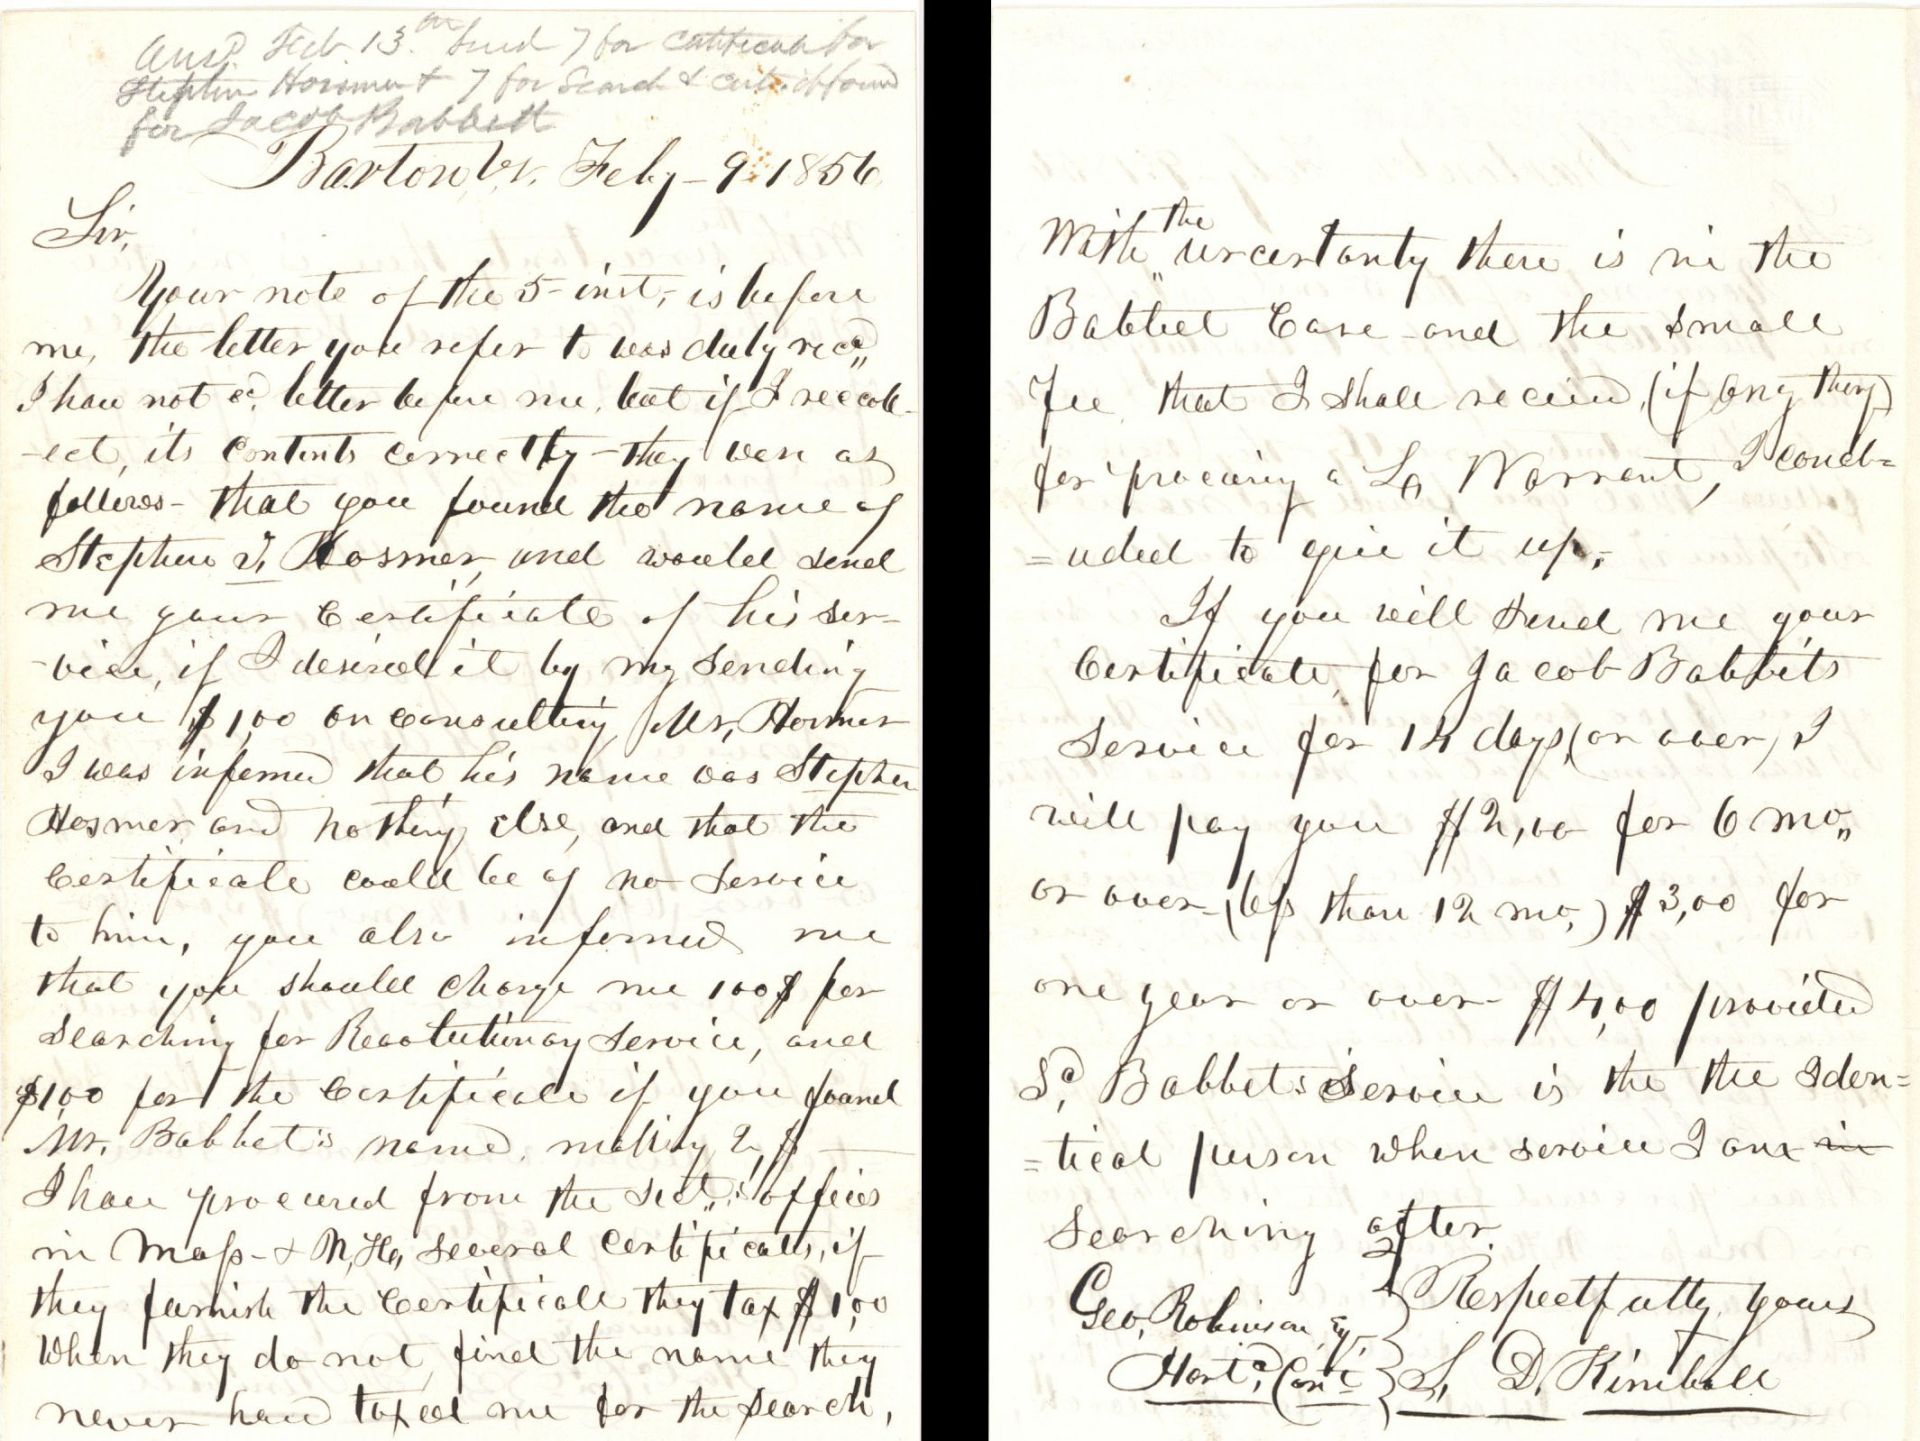 Ansd. Feb 13th Send 7 for certificate for
Stephen Hosmer & 7 for Search & certe. if found
for Jacob Babbett
Barton Vt. Feby - 9 - 1856
Sir,
Your note of the 5 - inst, is before
me, the letter you refer to was duly recd,,
I have not sd. letter before me, but if I reccoll-
-ect, its contents correctly - they were as
follows - that you found the name of
Stephen T. Hosmer, and would send
me your Certificate of his ser-
-vice, if I desired it by my sending
you $1,00 on consulting Mr, Hosmer
I was informed that his name was Stephen
Hosmer, and nothing else, and that the
Certificate could be of no service
to him, you also informed me
that you should charge me 100$ for
searching for Revolutionary service, and
$1,00 for the Certificate if you found
Mr. Babbet's name, making 2,$
I have procured from the Sect,,s offices
in Mass - & N, Ha, several Certificates, if
they furnish the Certificate they tax $1,00
When they do not find the name they
never have taxed me for the search,
With the uncertanty there is in the
Babbet Case - and the small
Fee that I shall receive, (if any thing)
for procuring a La Warrant, I concl=
=uded to give it up,-
If you will send me your
Certificate, for Jacob Babbits
service for 14 days, (or over,) I
will pay you $2,00 for 6 mo,,
or over - (less than 12 mo,) $3,00 for
one year or over - $4,00 provided
Sd, Babbet's service is the the Iden=
=tical person when service I am in
searching after.
Geo, Robinson, Esq
Hartd, Cont
Respectfully yours
S, D, Kimball